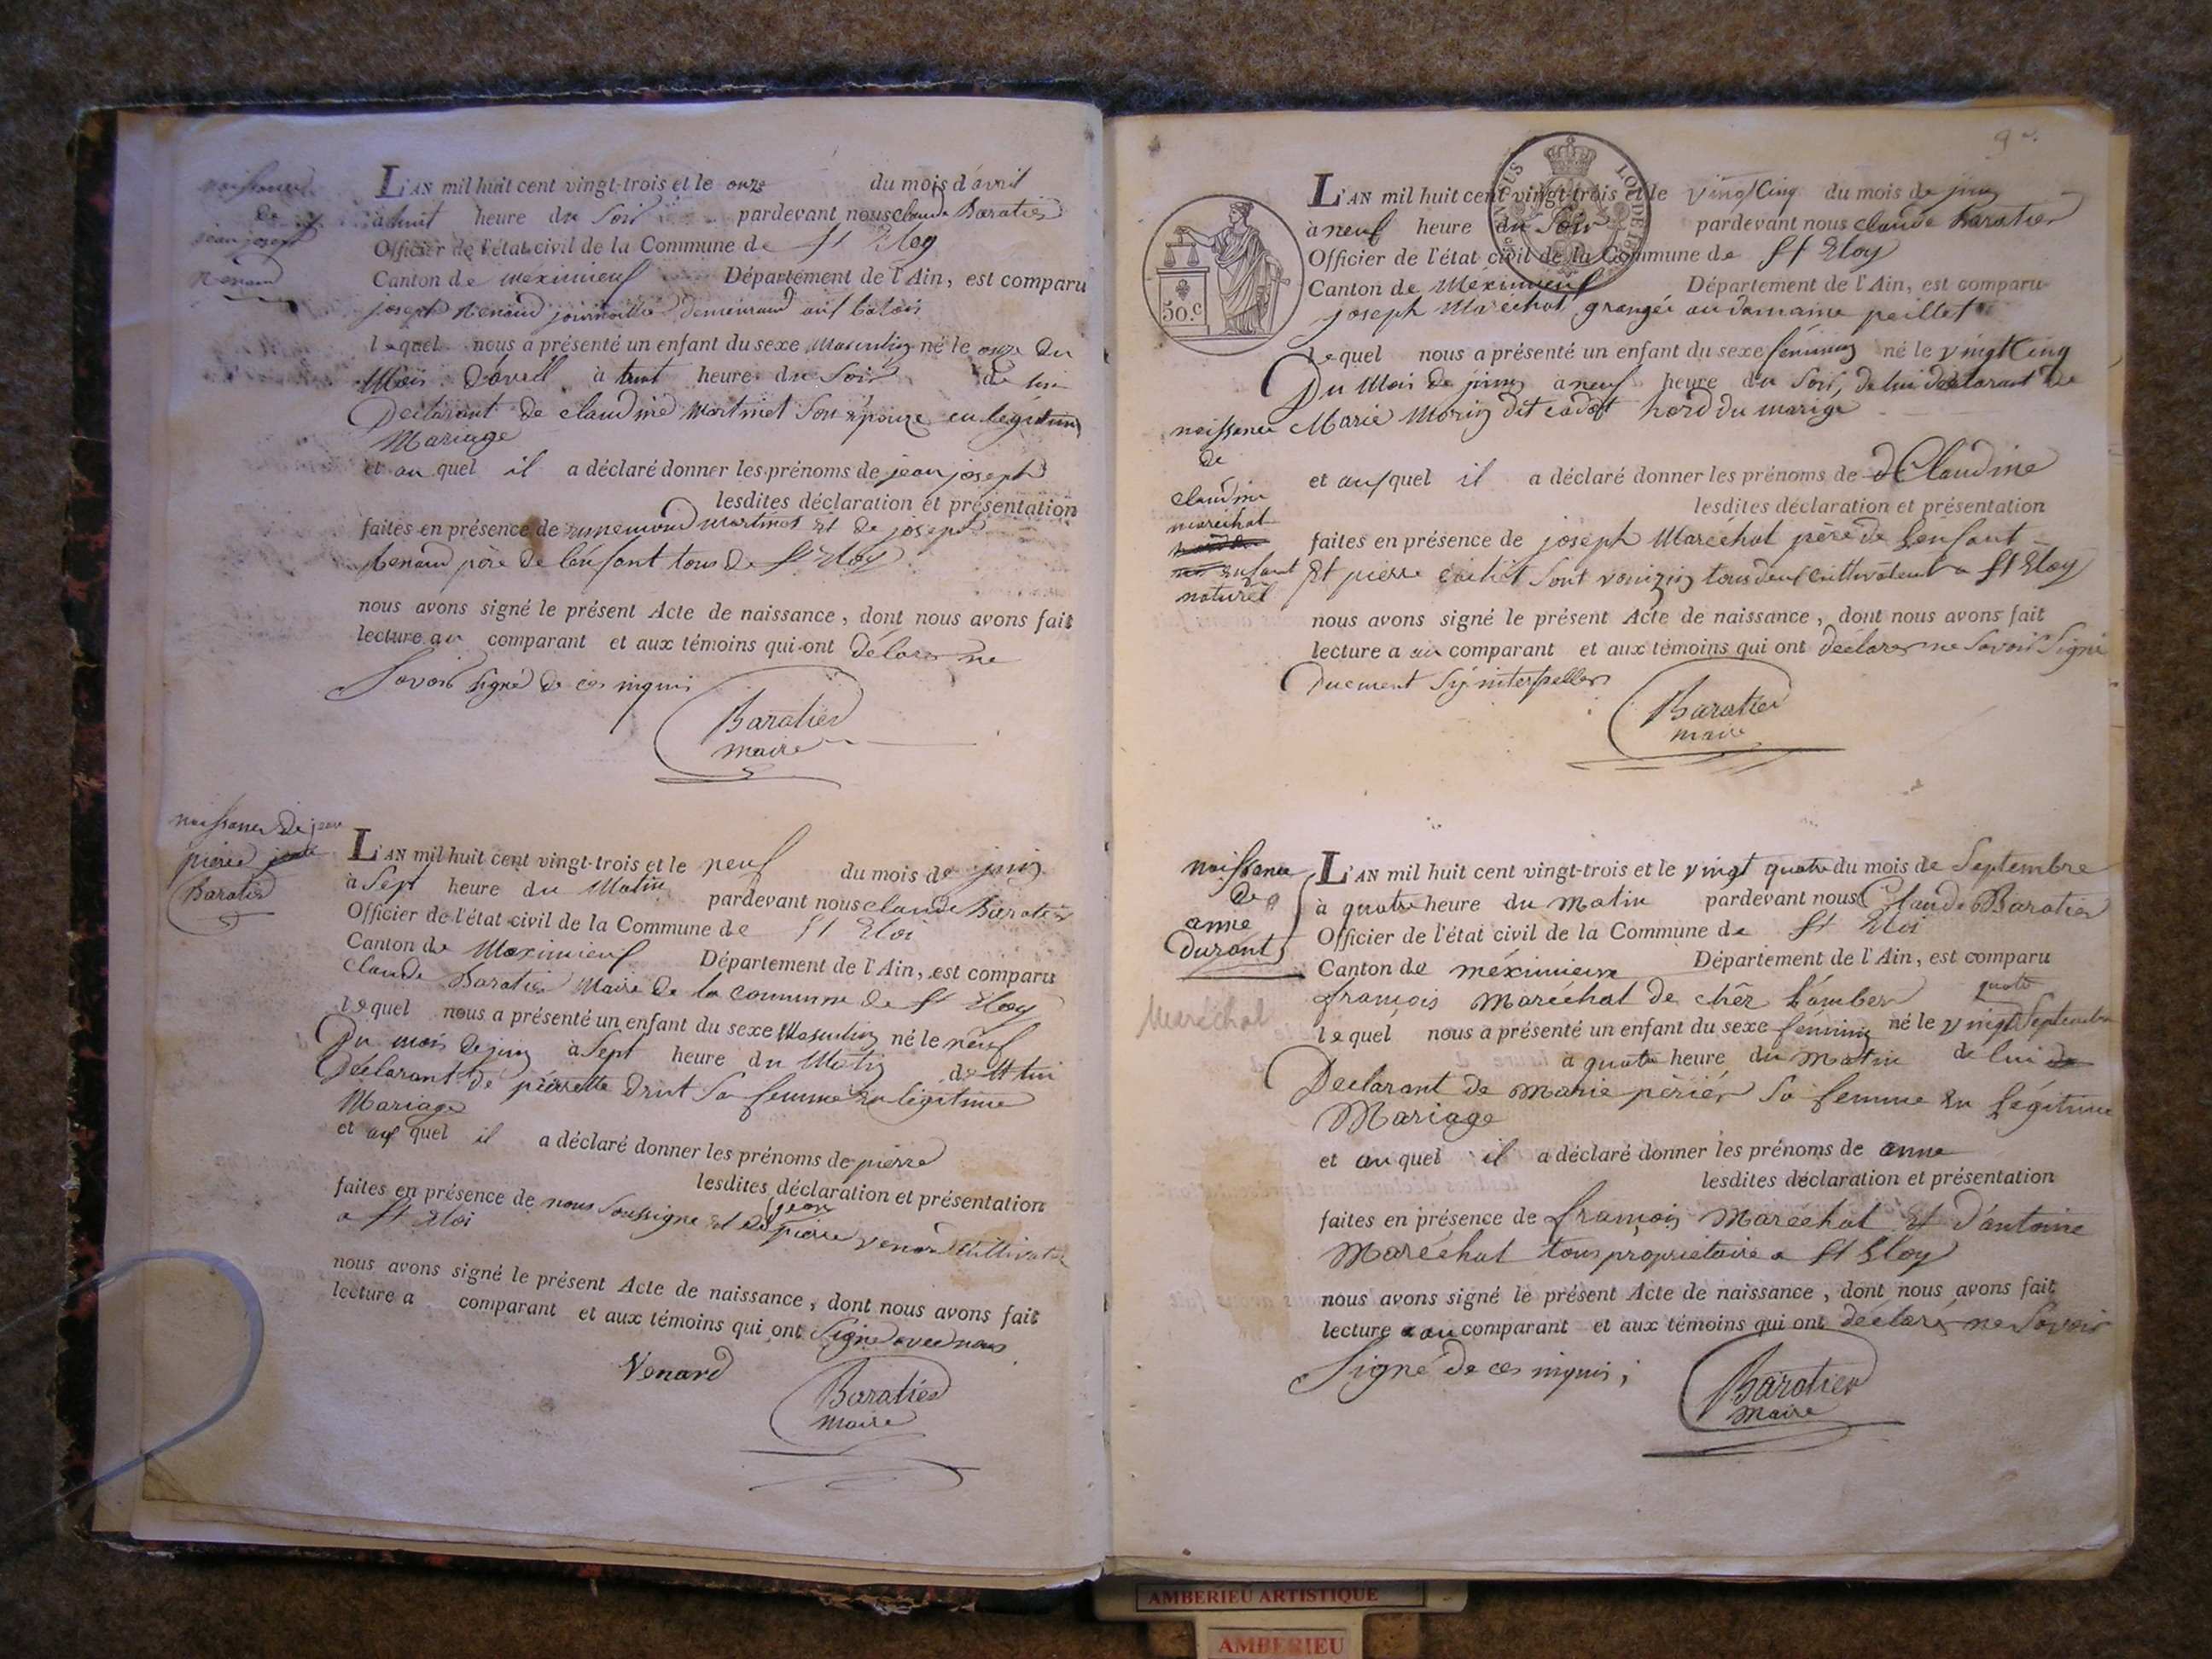 naissance
de
jean joseph
Renaud
L'AN mil huit cent vingt-trois et le onze du mois d'avril
à huit heure du Soir pardevant nous claude Baratier
Officier de l'état civil de la Commune de St Eloy
Canton de meximieux Département de l'Ain, est comparu
joseph Renaud journaillier demeurand
lequel nous a présenté un enfant du sexe Masculin né le onze du
Mois D'avril à huit heure du Soir de lui
Declarant de claudine Martinet Son épouze en légitime
Mariage
et au quel il a déclaré donner les prénoms de jean joseph
lesdites déclaration et présentation
faites en présence de Martinet et de joseph
Renaud père de l'enfant tous de St Eloy
nous avons signé le présent Acte de naissance, dont nous avons fait
lecture au comparant et aux témoins qui ont déclarer ne
Savoir Signé de ces inquis
Baratier
maire
naissance de jean
pierre
Baratier
L'AN mil huit cent vingt-trois et le neuf du mois de juin
à Sept heure du Matin pardevant nous claude Baratier
Officier de l'état civil de la Commune de St Eloi
Canton de Meximieux Département de l'Ain, est comparu
Claude Baratier Maire de la commune de St Eloy
lequel nous a présenté un enfant du sexe Masculin né le neuf
Du mois de juin à Sept heure du Matin de lui
Déclarant de pierrette Drut Sa femme en légitime
Mariage
et au quel il a déclaré donner les prénoms de pierre
lesdites déclaration et présentation
faites en présence de nous Soussigné et de pierre venard Cultivateur
a St Eloi
nous avons signé le présent Acte de naissance, dont nous avons fait
lecture a comparant et aux témoins qui ont Signé avec nous
Venard
Baratier
Maire
9
50.c
L'AN mil huit cent vingt-trois et le vingt Cinq du mois de juin
à neuf heure du Soir pardevant nous claude Baratier
Officier de l'état civil de la Commune de St Eloy
Canton de Méximieux Département de l'Ain, est comparu
joseph Maréchal grangér au domaine peillet
lequel nous a présenté un enfant du sexe féminin né le vingt Cinq
Du Mois de juin a neuf heure du Soir, de lui déclarant de
Marie Morin dit cadet hord du marige
naissance
de
claudine
maréchal
enfant
naturel
et au quel il a déclaré donner les prénoms de Claudine
lesdites déclaration et présentation
faites en présence de joseph Maréchal père de l'enfant
Et pierre Sont voaizin tous deux Cultivateur a St Eloy
nous avons signé le présent Acte de naissance, dont nous avons fait
lecture a au comparant et aux témoins qui ont déclarer ne Savoir Signé
Duement interpeller
Baratier
maire
naissance
de
anne
durant
Maréchal
L'AN mil huit cent vingt-trois et le vingt quatre du mois de Septembre
à quatre heure du Matin pardevant nous Claude Baratier
Officier de l'état civil de la Commune de St Eloi
Canton de méximieux Département de l'Ain, est comparu
françois Maréchal de chêz Lamber
quatre
lequel nous a présenté un enfant du sexe féminin né le vingt Septembre
à quatre heure du Matin de lui
Déclarant de Marie périer Sa femme en Légitime
Mariage
et au quel il a déclaré donner les prénoms de anne
lesdites déclaration et présentation
faites en présence de françois Maréchal Et d'antoine
Maréchal tous propriétaire a St Eloy
nous avons signé le présent Acte de naissance, dont nous avons fait
lecture a au comparant et aux témoins qui ont déclarer ne Savoir
Signé de ces inquis;
Baratier
Maire
AMBERIEU ARTISTIQUE
AMBERIEU